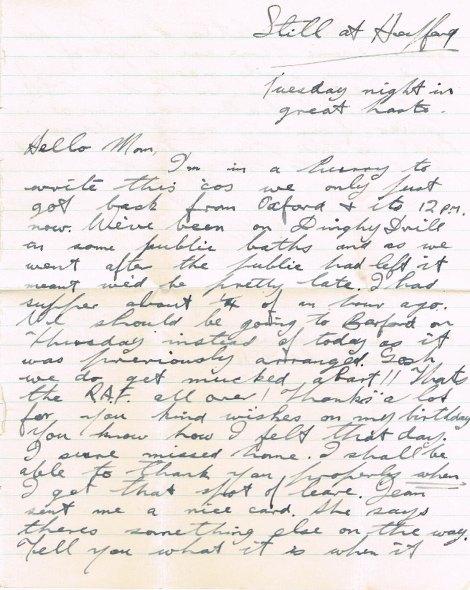 Still at
Tuesday night in
great haste.
Hello Mom,
I'm in a hurry to
write this 'cos we only just
got back from Oxford & its 12 p.m.
now. We've been on Dinghy Drill
in some public baths and as we
went after the public had left it
meant we'd be pretty late. I had
supper about ¼ of an hour ago.
We should be going to Barford on
Thursday instead of today as it
was previously arranged. Gosh
we do get mucked about!! That
the R.A.F. all over! Thanks a lot
for you kind wishes on my birthday
You know how I felt that day.
I sure missed home. I shall be
able to thank you properly when
I get that spot of leave. Jean
sent me a nice card. She says
theres something else on the way.
Tell you what it is when it